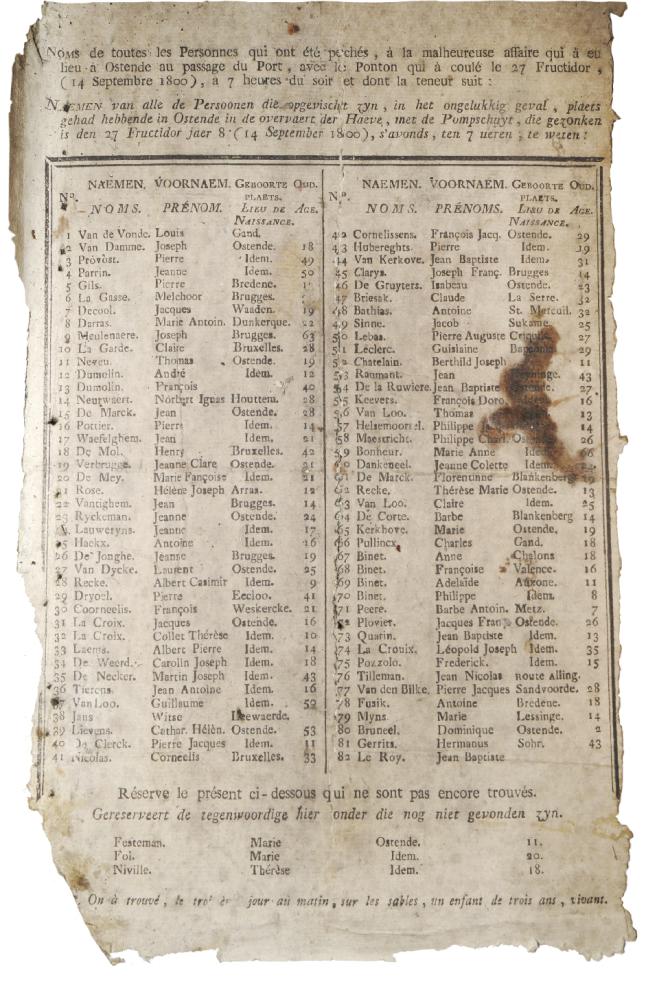 Noms de toutes les Personnes qui ont été pechés, à la malheureuse affaire qui à eu
lieu à Ostende au passage du Port, avec le Ponton qui à coulé le 27 Fructidor,
(14 Septembre 1800), à 7 heures du soir et dont la teneur suit :
Naemen van alle de Persoonen die opgevischt zyn, in het ongelukkig geval, plaets
gehad hebbende in Ostende in de overvaert der Haeve, met de Pompschuyt, die gezonken
is den 27 Fructidor jaer 8 (14 September 1800), s'avonds, ten 7 ueren, te weten :
NAEMEN. VOORNAEM. Geboorte Oud.
Nº. PLAETS.
NOMS. PRÉNOM. Lieu de Age.
Naissance.
1 Van de Vonde. Louis Gand.
2 Van Damme. Joseph Ostende. 18
3 Provost. Pierre Idem. 49
4 Parrin. Jeanne Idem. 50
5 Gils. Pierre Bredene.
6 La Gasse. Melchoor Brugges.
7 Decool. Jacques Waaden. 19
8 Darras. Marie Antoin. Dunkerque. 22
9 Meulenaere. Joseph Brugges. 63
10 La Garde. Claire Bruxelles. 28
11 Neveu. Thomas Ostende. 19
12 Dumolin. André Idem. 12
13 Dumolin. François 40
14 Neurwaert. Norbert Ignas Houttem. 28
15 De Marck. Jean Ostende. 28
16 Pottier. Pierre Idem. 14
17 Waefelghem. Jean Idem. 21
18 De Mol. Henry Bruxelles. 42
19 Verbrugge. Jeanne Clare Ostende. 21
20 De Mey. Marie Fançoise Idem. 21
21 Rose. Hélène Joseph Arras. 12
22 Vantighem. Jean Brugges. 14
23 Ryckeman. Jeanne Ostende. 24
Lauweryns. Jeanne Idem. 17
25 Haekx. Antoine Idem. 16
26 De Jonghe. Jeanne Brugges. 19
27 Van Dycke. Laurent Ostende. 25
28 Recke. Albert Casimir Idem. 9
29 Dryoel. Pierre Eecloo. 41
30 Coorneelis. François Weskercke. 21
31 La Croix. Jacques Ostende. 16
32 La Croix. Collet Thérèse Idem. 10
33 Laems. Albert Pierre Idem. 14
34 De Weerd. Carolin Joseph Idem. 18
35 De Necker. Martin Joseph Idem. 43
36 Tierens. Jean Antoine Idem. 16
37 Van Loo. Guillaume Idem. 52
38 Jans Witse Leewaerde.
39 Lievens. Cathar. Hélèn. Ostende. 53
40 De Clerck. Pierre Jacques Idem. 11
41 Nicolas. Corneelis Bruxelles. 33
NAEMEN. VOORNAEM. Geboorte Oud.
Nº. PLAETS.
NOMS. PRÉNOMS. Lieu de Age.
Naissance.
42 Cornelissens. François Jacq. Ostende. 29
43 Hubereghts. Pierre Idem. 19
44 Van Kerkove. Jean Baptiste Idem. 31
45 Clarys. Joseph Franç. Brugges 14
46 De Gruyters. Isabeau Ostende. 23
47 Briesak. Claude La Serre. 32
48 Bathias. Antoine St. Meteuil. 32
49 Sinne. Jacob Sukame. 25
50 Lebas. Pierre Auguste 27
51 Léclerc. Guislaine 29
52 Chatelain. Berthild Joseph 11
53 Raumant. Jean 43
54 De la Ruwiere. Jean Baptiste 27
55 Keevers. François Doro. 16
56 Van Loo. Thomas 13
57 Helsemoortel. Philippe 14
58 Maestricht. Philippe 26
59 Bonheur. Marie Anne 66
60 Dankeneel. Jeanne Colette Idem.
61 De Marck. Florentinne Blankenberg
62 Recke. Thérèse Marie Ostende. 13
63 Van Loo. Claire Idem. 25
64 De Corte. Barbe Blankenberg 14
65 Kerkhove. Marie Ostende. 19
66 Pullincx. Charles Gand. 18
67 Binet. Anne Chalons 18
68 Binet. Françoise Valence. 16
69 Binet. Adelaïde Auxone. 11
70 Binet. Philippe Idem. 8
71 Peere. Barbe Antoin. Metz. 7
72 Plovier. Jacques Franç. Ostende. 26
73 Quarin. Jean Baptiste Idem. 13
74 La Crouix. Léopold Joseph Idem. 35
75 Pozzolo. Frederick. Idem. 15
76 Tilleman. Jean Nicolas Route Alling.
77 Van den Bilke. Pierre Jacques Sandvoorde. 28
78 Fusik. Antoine Bredene. 18
79 Myns. Marie Lessinge. 14
80 Bruneel. Dominique Ostende. 2
81 Gerrits. Hermanus Sohr. 43
82 Le Roy. Jean Baptiste
Réserve le présent ci-dessous qui ne sont pas encore trouvés.
Gereserveert de tegenwoordige hier onder die nog niet gevonden zyn.
Festeman. Marie Ostende. 11.
Fol. Marie Idem. 20.
Niville. Thérèse Idem. 18.
On à trouvé, le jour au matin, sur les sables, un enfant de trois ans, vivant.